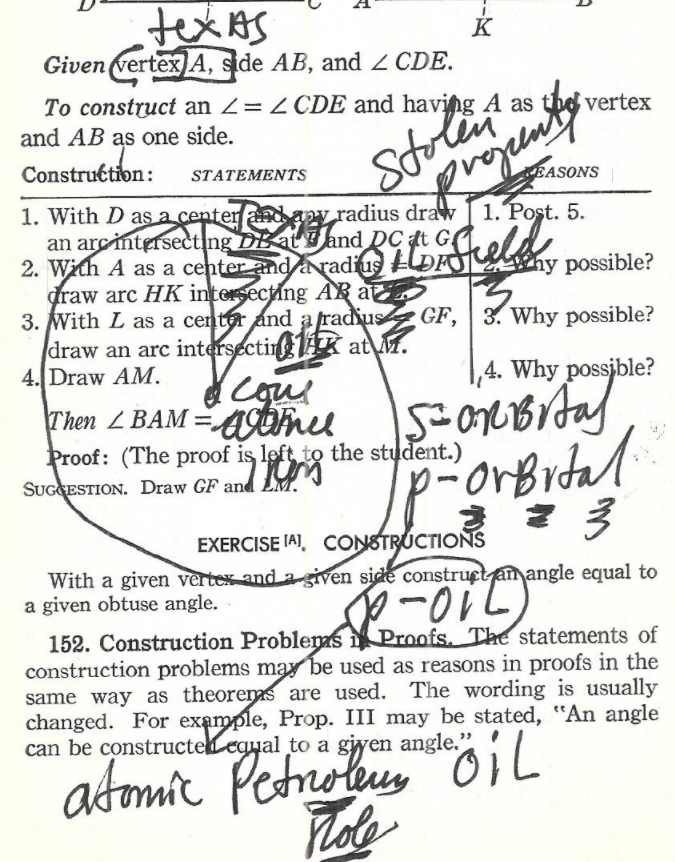 D C A B
K
texas
Given vertex A, side AB, and ∠ CDE.
To construct an ∠ = ∠ CDE and having A as the vertex
and AB as one side.
stolen
property
Construction: STATEMENTS REASONS
Texas
1. With D as a center and any radius draw 1. Post. 5.
an arc intersecting DE at F and DC at G.
OIL field
2. With A as a center and a radius = DF 2. Why possible?
draw arc HK intersecting AB at L.
3. With L as a center and a radius = GF, 3. Why possible?
draw an arc intersecting HK at M.
oil
4. Draw AM. 4. Why possible?
a cone
Then ∠ BAM = ∠ CDE.
s-orBital
Proof: (The proof is left to the student.)
p-orBital
SUGGESTION. Draw GF and LM.
EXERCISE [A]. CONSTRUCTIONS
With a given vertex and a given side construct an angle equal to
a given obtuse angle.
p-OiL
152. Construction Problems in Proofs. The statements of
construction problems may be used as reasons in proofs in the
same way as theorems are used. The wording is usually
changed. For example, Prop. III may be stated, "An angle
can be constructed equal to a given angle."
atomic Petroleum OiL